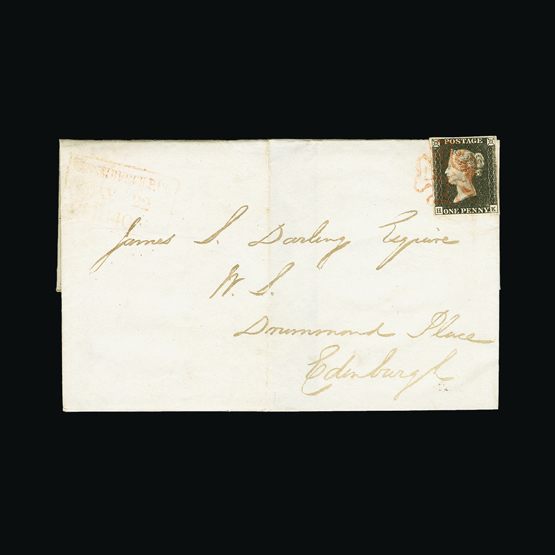 POSTAGE
ONE PENNY
H K
James S. Darling Esquire
W. S.
Drummond Place
Edinburgh